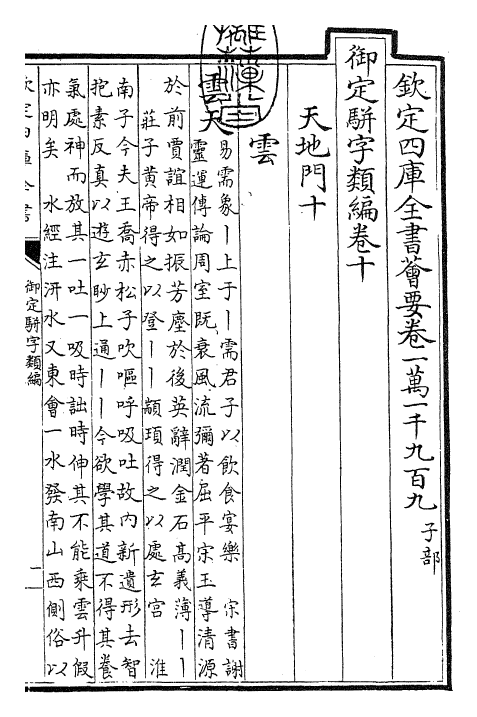 欽定四庫全書薈要卷一萬一千九百九 子部
御定駢字類編卷十
天地門十
雲
雲天
易需象丨上于丨需君子以飲食宴樂 宋書謝
靈運傳論周室既衰風流彌著屈平宋玉導清源
於前賈誼相如振芳塵於後英辭潤金石髙義薄丨丨
莊子黄帝得之以登丨丨顓頊得之以處玄宫 淮
南子今夫王喬赤松子吹嘔呼吸吐故内新遺形去智
抱素反真以遊玄眇上通丨丨今欲學其道不得其養
氣處神而放其一吐一吸時詘時伸其不能乗雲升假
亦明矣 水經注汧水又東會一水發南山西側俗以
御定駢字類編